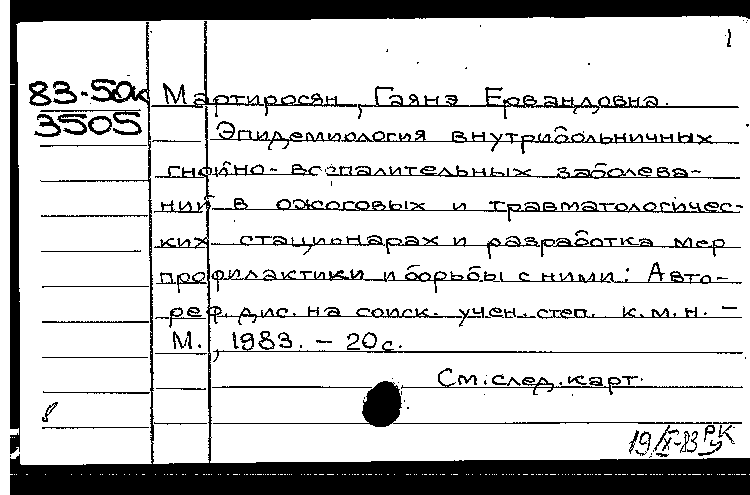 1
83-50к
3505
Мартиросян, Гаянэ Ервандовна.
Эпидемиология внутрибольничных
гнойно-воспалительных заболева-
ний в ожоговых и травматологичес-
ких стационарах и разработка мер
профилактики и борьбы с ними: Авто-
реф. дис. на соиск. учен. степ. к.м.н. -
М., 1983. - 20 с.
См. след. карт.
19/IX-83